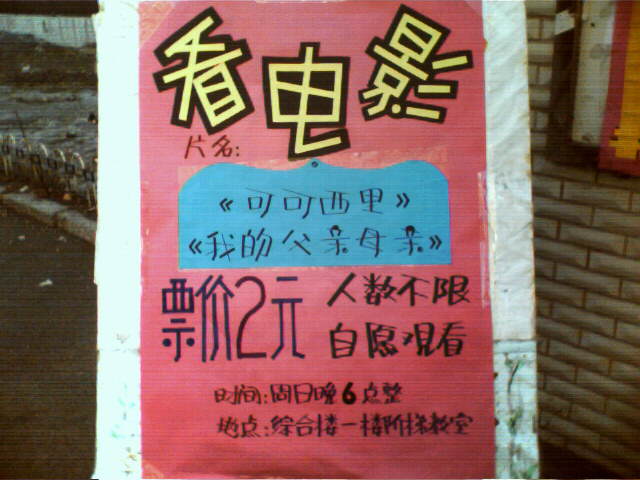 看电影
片名:
《可可西里》
《我的父亲母亲》
票价2元
人数不限
自愿观看
时间:周日晚6点整
地点:综合楼一楼阶梯教室